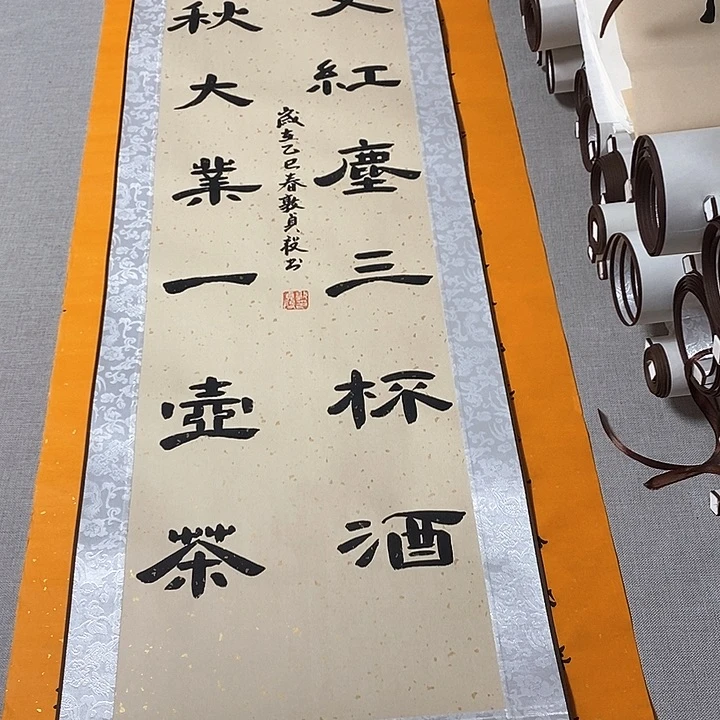 丈紅塵三杯酒
歲在乙巳春敦貞书
秋大業一壺茶